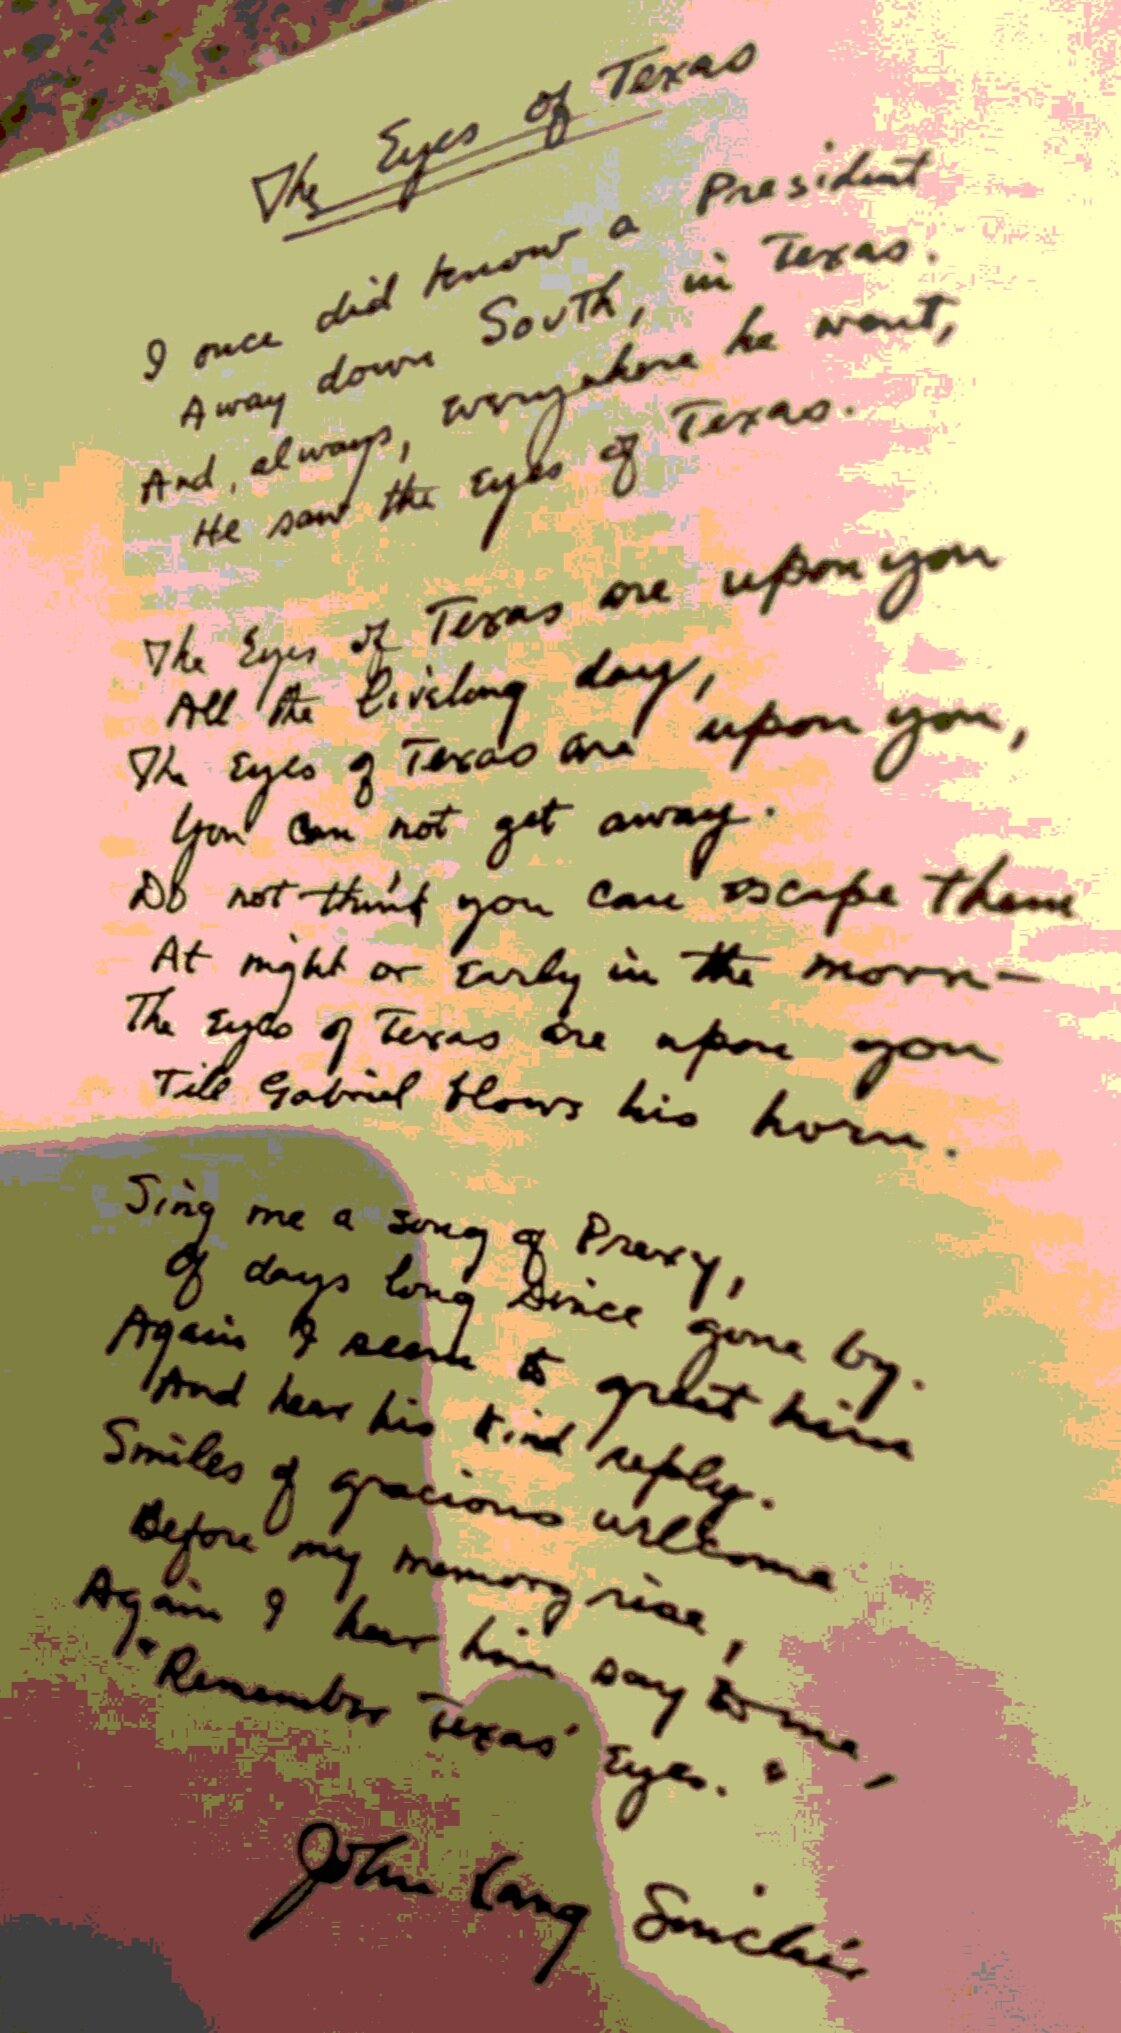 The Eyes of Texas
I once did know a President
Away down South, in Texas.
And, always, everywhere he went,
He saw the Eyes of Texas.
The Eyes of Texas are upon you
All the livelong day,
The Eyes of Texas are upon you,
You can not get away.
Do not think you can escape them
At night or early in the morn—
The Eyes of Texas are upon you
Till Gabriel blows his horn.
Sing me a song of Prexy,
Of days long since gone by.
Again I seem to greet him
And hear his kind reply.
Smiles of gracious welcome
Before my memory rise,
Again I hear him say to me,
"Remember Texas' Eyes."
John Lang Sinclair